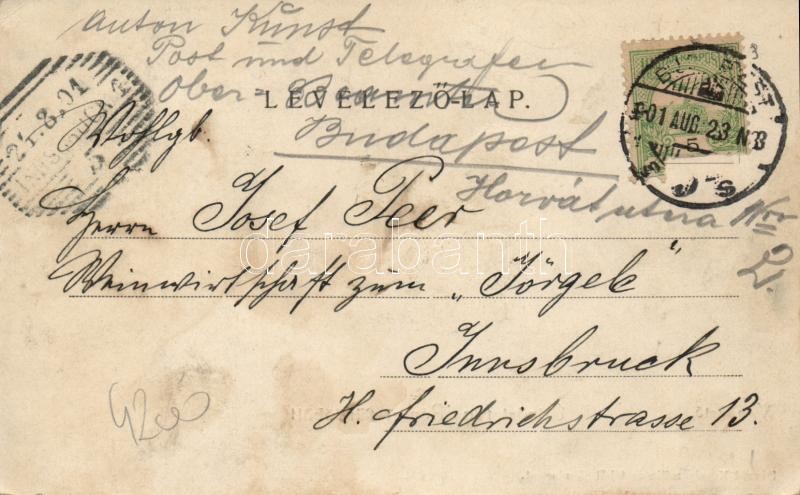 Anton Kunst
Post und Telegrafen
Ober-
LEVELEZŐ-LAP.
Budapest
Horvát utcza Nro
2.
24.8.01
INNSBRUCK
BUDAPEST
901 AUG. 23 N 8
Wohlgb.
Herrn Josef Peer
Weinwirtschaft zum „Jörgele“
Innsbruck
H. Friedrichstrasse 13.
4200
darabanth